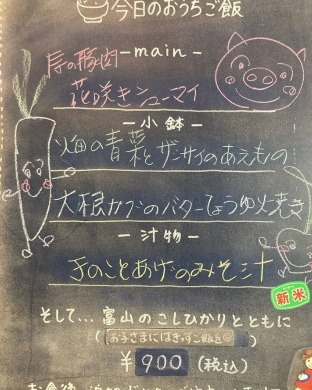 今日のおうちご飯
-main-
豚肉
花咲きシューマイ
-小鉢-
畑の青菜とザーサイのあえもの
大根カブのバターしょうゆ焼き
-汁物-
きのことあげのみそ汁
新米
そして…富山のこしひかりとともに
¥900(税込)